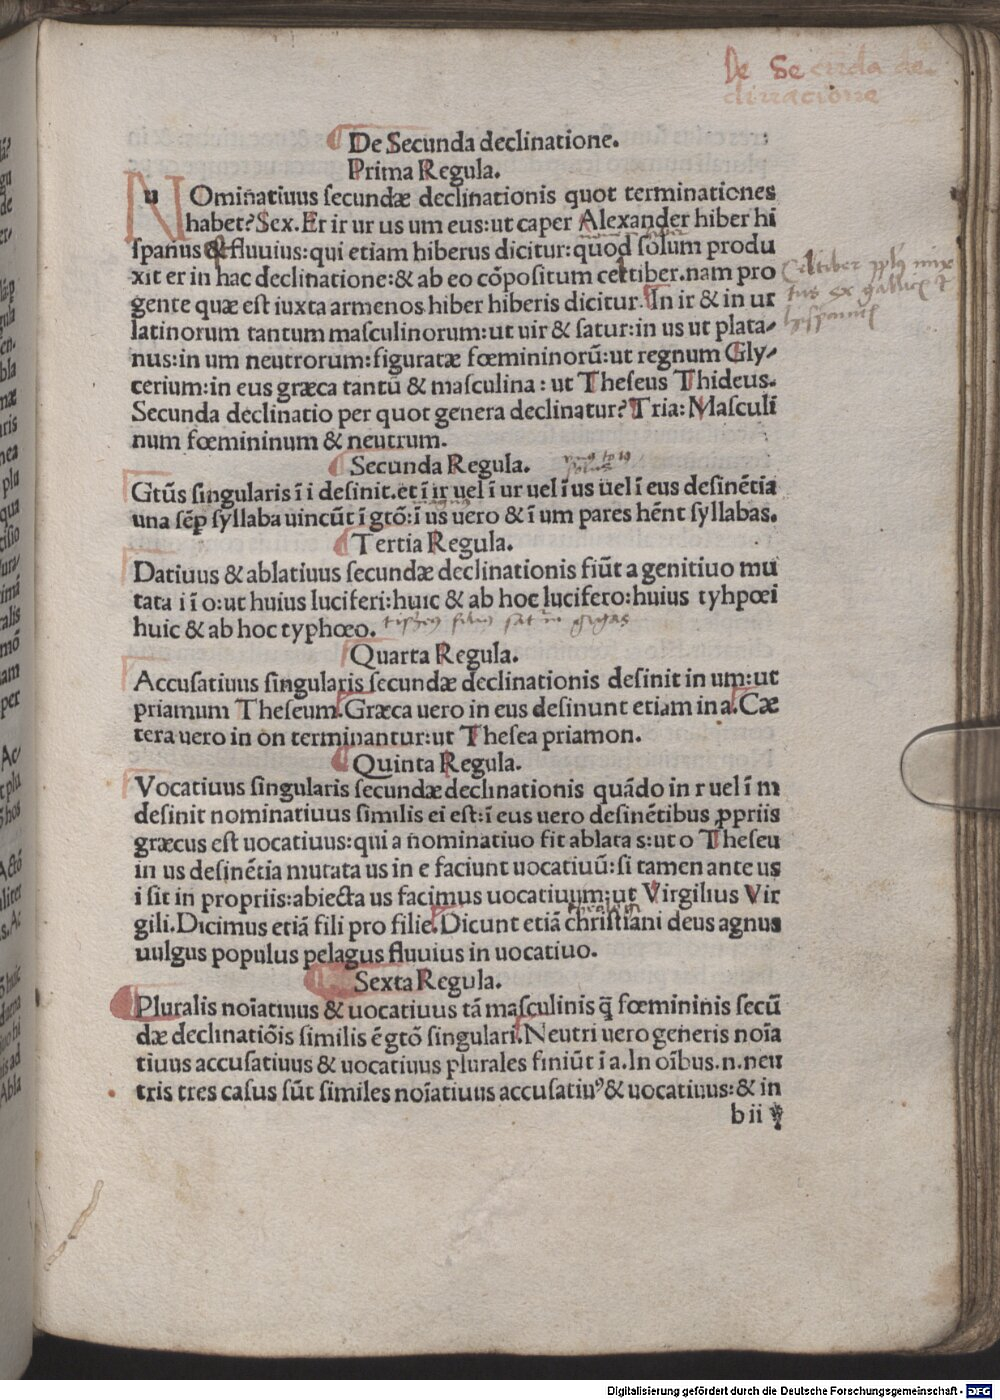 De Secunda de-
clinacione
De Secunda declinatione.
Prima Regula.
NOminatiuus secundæ declinationis quot terminationes
habet? Sex. Er ir ur us um eus: ut caper Alexander hiber hi
spanus & fluuius: qui etiam hiberus dicitur: quod solum produ
xit er in hac declinatione: & ab eo cōpositum celtiber. nam pro
gente quæ est iuxta armenos hiber hiberis dicitur. In ir & in ur
latinorum tantum masculinorum: ut uir & satur: in us ut plata-
nus: in um neutrorum: figuratæ fœmininorū: ut regnum Gly-
cerium: in eus græca tantū & masculina: ut Theseus Thideus.
Secunda declinatio per quot genera declinatur? Tria: Masculi
num fœmininum & neutrum.
Celtiber pplꝰ mix
tus ex gallis &
hyspanis
Secunda Regula.
Gtūs singularis ī i desinit. et ī ir uel ī ur uel ī us uel ī eus desinētia
una sēp syllaba uincūt ī gtō: ī us uero & ī um pares hēnt syllabas.
Tertia Regula.
Datiuus & ablatiuus secundæ declinationis fiūt a genitiuo mu
tata i ī o: ut huius luciferi: huic & ab hoc lucifero: huius tyhpœi
huic & ab hoc typhœo.
Quarta Regula.
Accusatiuus singularis secundæ declinationis desinit in um: ut
priamum Theseum. Græca uero in eus desinunt etiam in a. Cæ
tera uero in on terminantur: ut Thesea priamon.
Quinta Regula.
Vocatiuus singularis secundæ declinationis quādo in r uel ī m
desinit nominatiuus similis ei est: ī eus uero desinētibus ꝓpriis
græcus est uocatiuus: qui a nominatiuo fit ablata s: ut o Theseu
in us desinētia mutata us in e faciunt uocatiuū: si tamen ante us
i sit in propriis: abiecta us facimus uocatiuum: ut Virgilius Vir
gili. Dicimus etiā fili pro filie. Dicunt etiā christiani deus agnus
uulgus populus pelagus fluuius in uocatiuo.
Sexta Regula.
Pluralis noīatiuus & uocatiuus tā masculinis q̄ fœmininis secū
dæ declinatiōis similis ē gtō singulari. Neutri uero generis noīa
tiuus accusatiuus & uocatiuus plurales finiūt ī a. In oībus. n. neu
tris tres casus sūt similes noīatiuus accusatiuꝰ & uocatiuus: & in
b ii
Digitalisierung gefördert durch die Deutsche Forschungsgemeinschaft - DFG